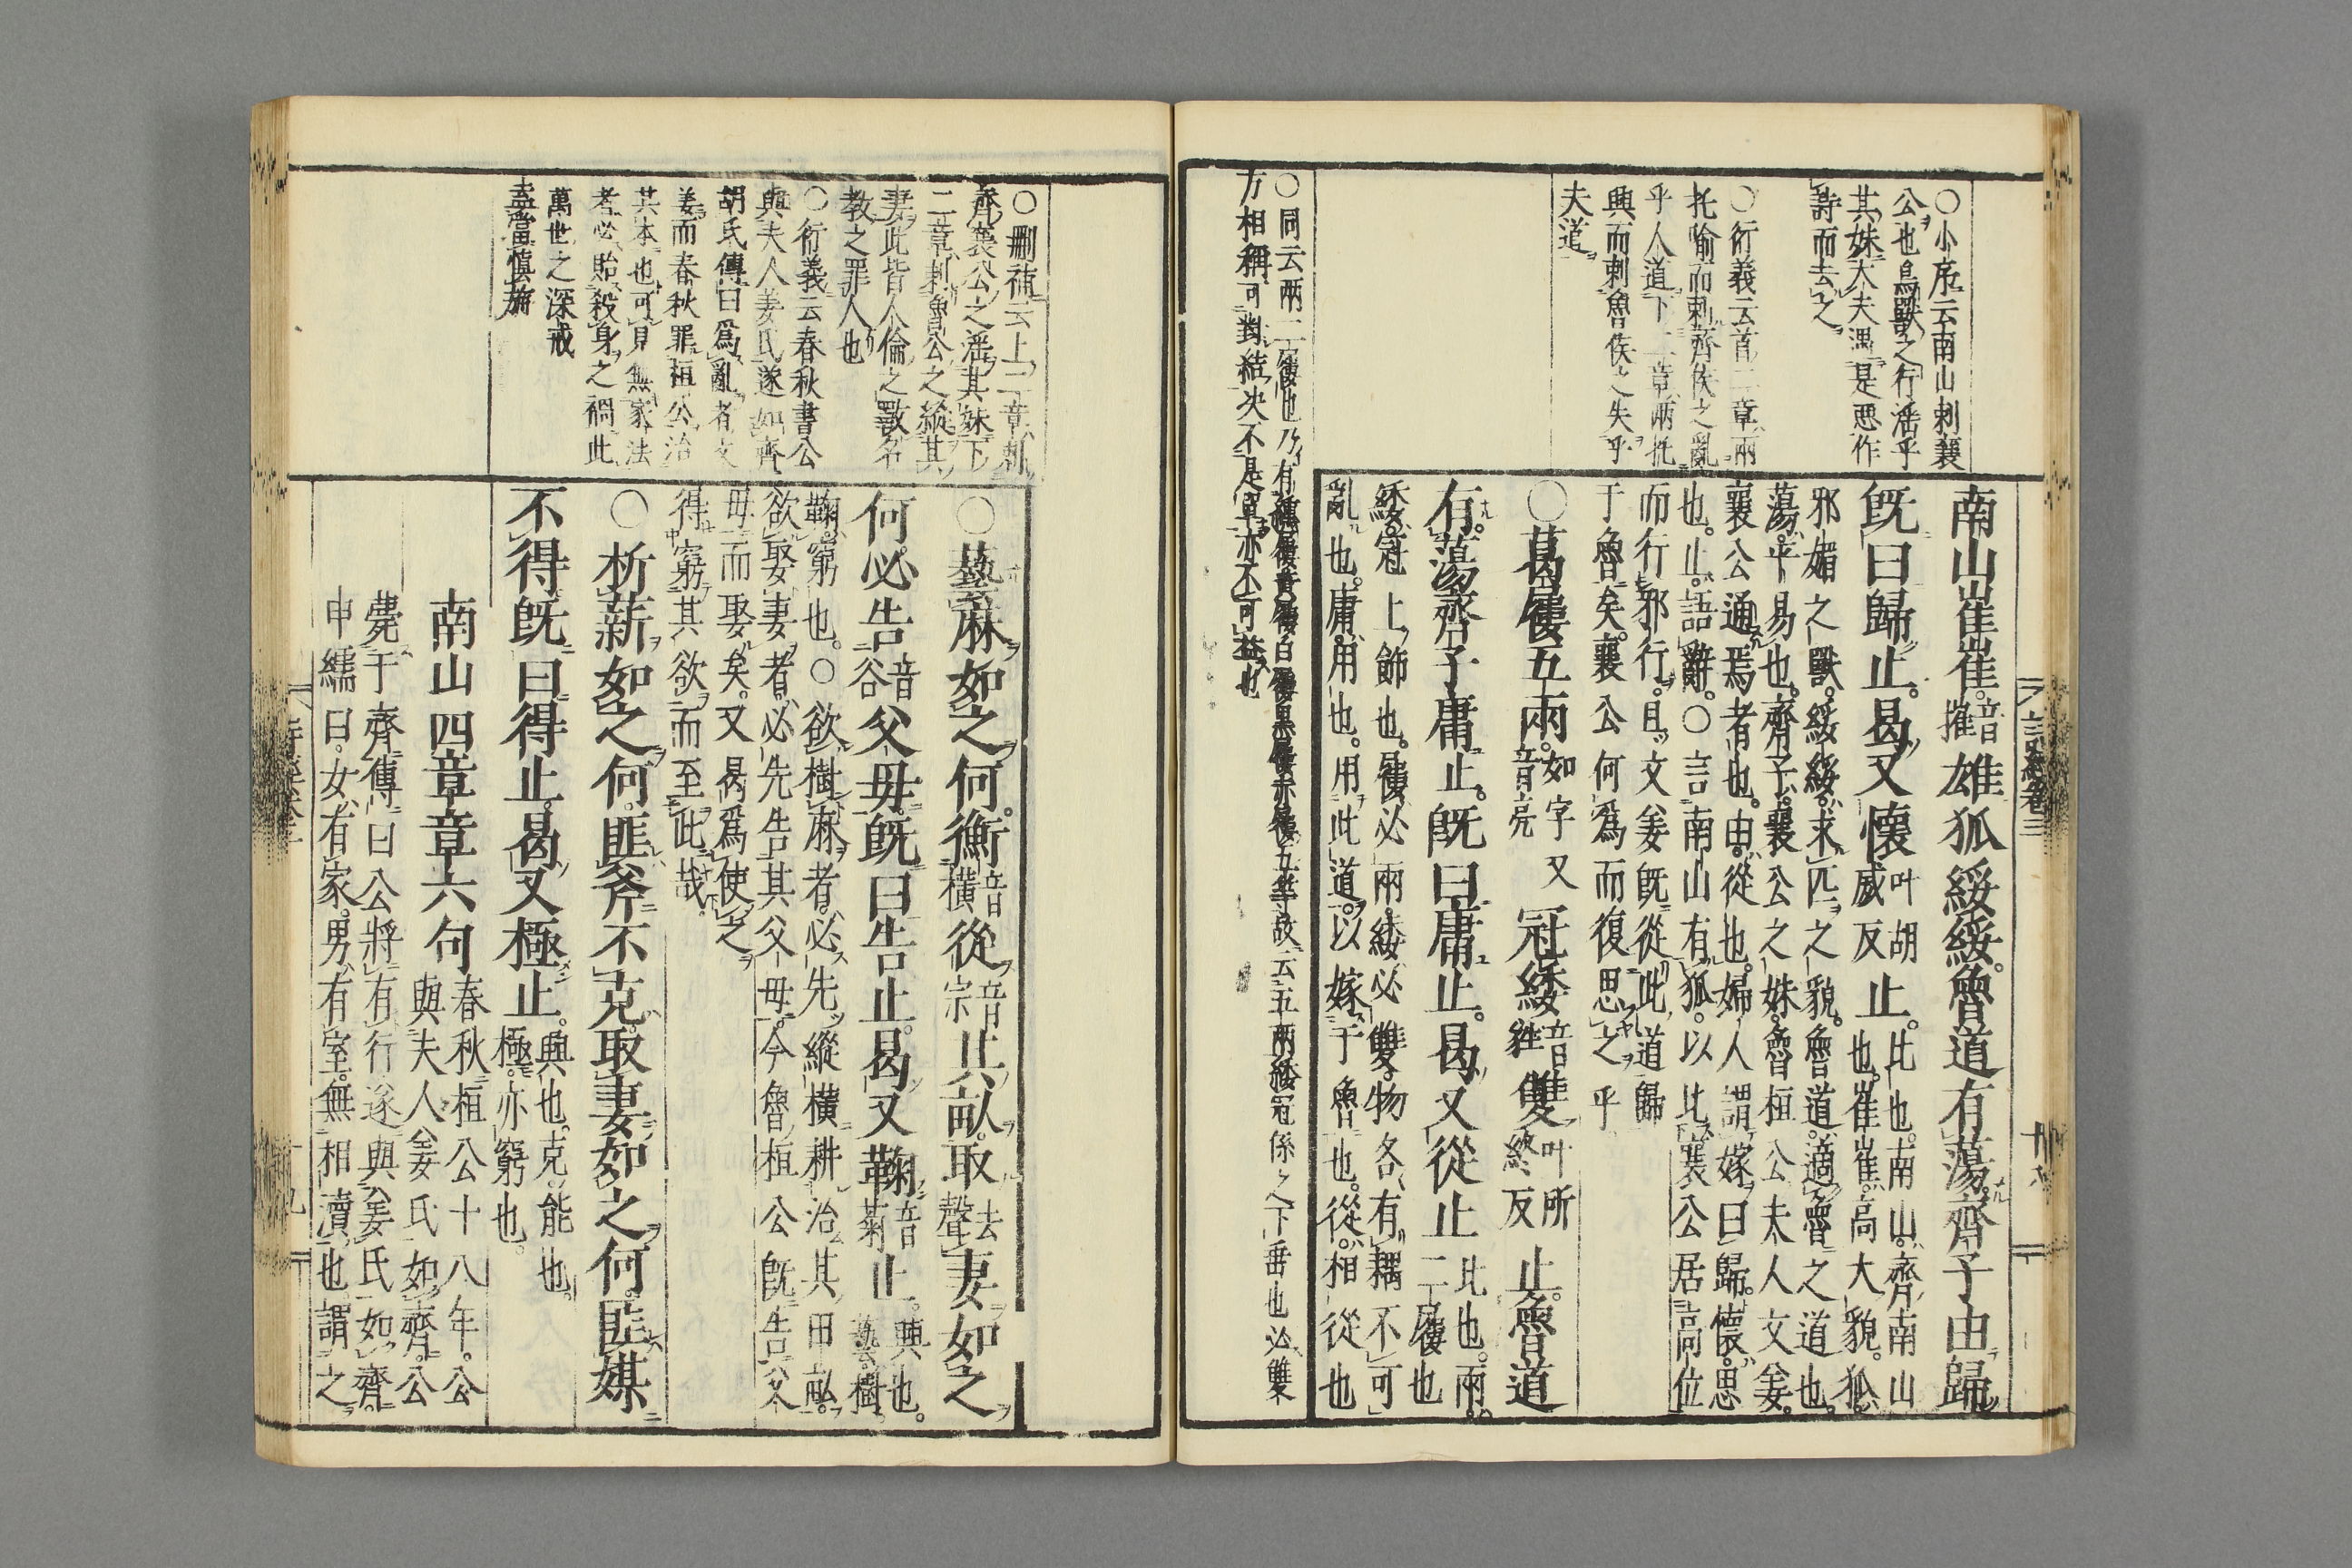 ○小序云南山刺襄
公也鳥獸之行淫乎
其妹大夫遇是惡作
詩而去之
○衍義云首二章兩
托喻而刺齊侯之亂
乎人道下二章兩托
興而刺魯侯之失乎
夫道
南山崔崔音摧雄狐綏綏魯道有蕩齊子由歸
既曰歸止曷又懷叶胡威反止比也南山齊南山
也崔崔高大貌狐
邪媚之獸綏綏求匹之貌魯道適魯之道也
蕩平易也齊子襄公之妹魯桓公夫人文姜
襄公通焉者也由從也婦人謂嫁曰歸懷思
也止語辭○言南山有狐以比襄公居高位
而行邪行且文姜既從此道歸
于魯矣襄公何為而復思之乎
○葛屨五兩如字又音亮冠緌音雖雙叶所終反止魯道
有蕩齊子庸止既曰庸止曷又從止比也兩
二屨也
緌冠上飾也屨必兩緌必雙物各有耦不可
亂也庸用也用此道以嫁于魯也從相從也
○同云兩二屨也乃有
五等故云五兩緌冠係之下垂也必雙
方相稱可對結決不是單亦不可
詩經卷三
○刪補云上二章刺
齊襄公之淫其妹下
二章刺魯公之縱其
妻此皆人倫之獸名
教之罪人也
○衍義云春秋書公
與夫人姜氏遂如齊
胡氏傳曰為亂者文
姜而春秋罪桓公治
其本也可見無家法
者必貽殺身之禍此
萬世之深戒
○蓺麻如之何衡音橫從音宗其畝取去聲妻如之
何必告音谷父母既曰告止曷又鞠音菊止興也
蓺樹
鞠窮也○欲樹麻者必先縱橫耕治其田畝
欲娶妻者必先告其父母今魯桓公既告父
母而娶矣又曷為使之
得窮其欲而至此哉
○析薪如之何匪斧不克取妻如之何匪媒
不得既曰得止曷又極止興也克能也
極亦窮也
南山四章章六句春秋桓公十八年公
與夫人姜氏如齊公
薨于齊傳曰公將有行遂與姜氏如齊
申繻曰女有家男有室無相瀆也謂之